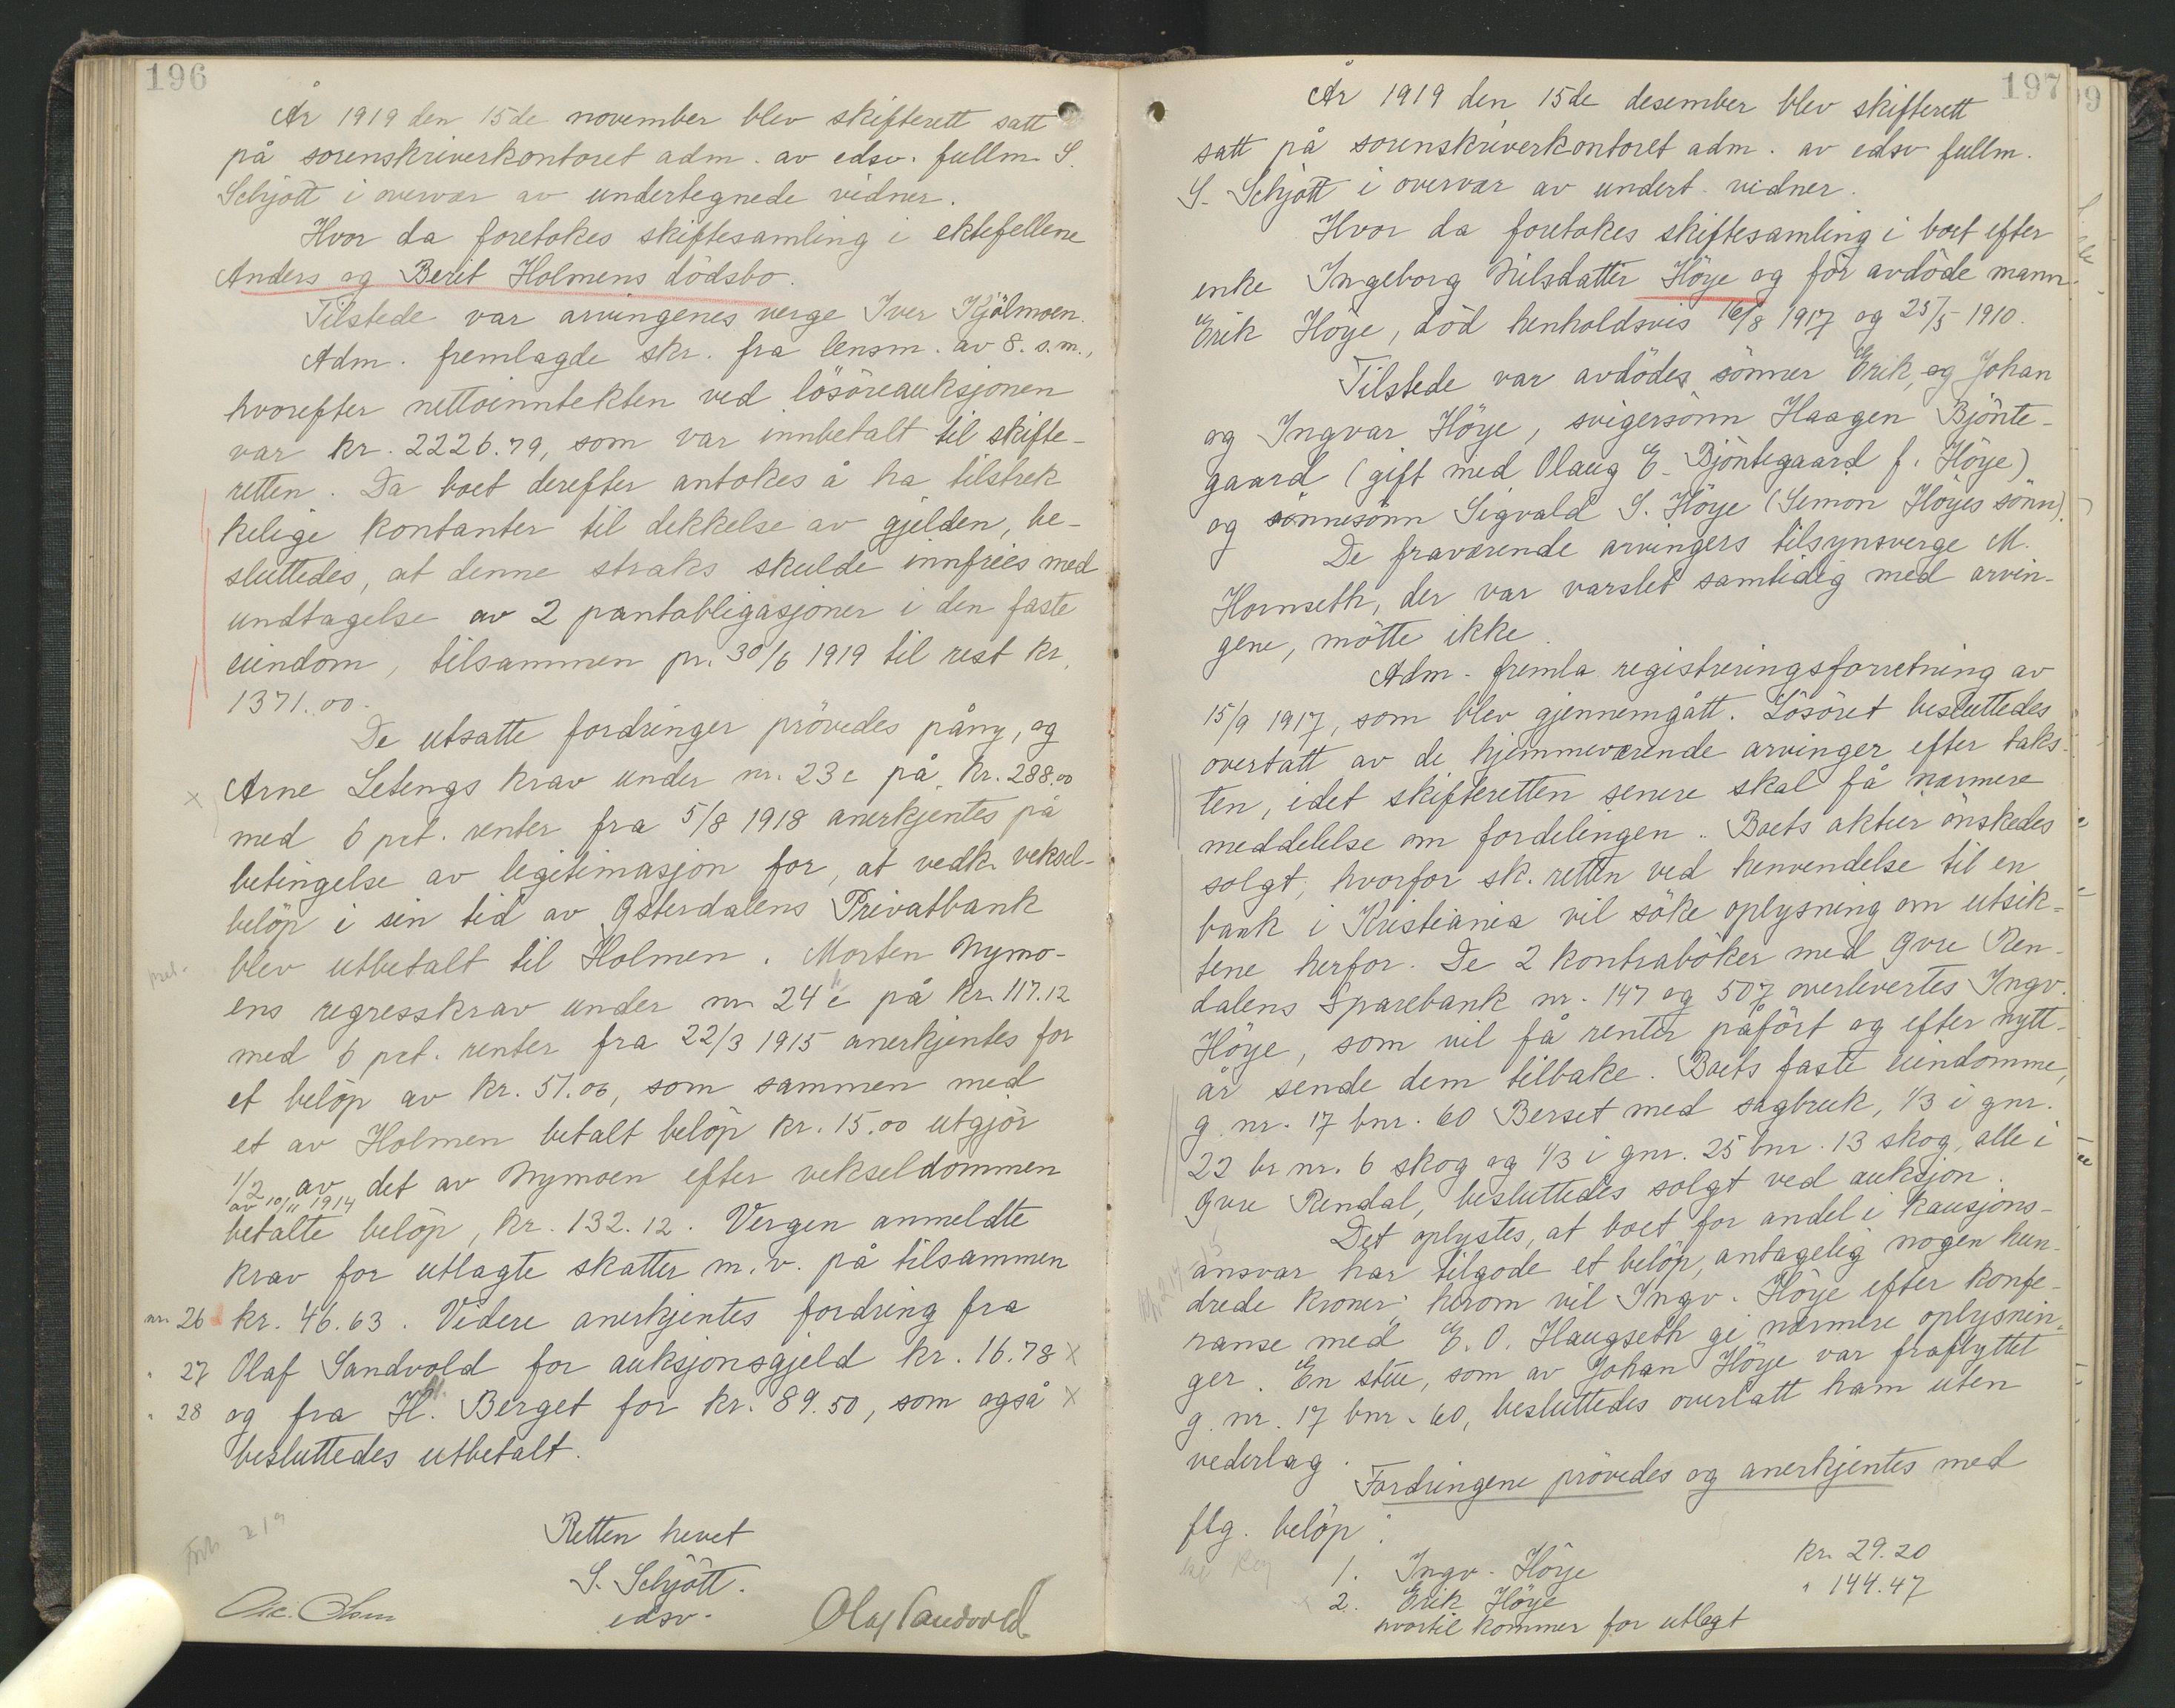 196
År 1919 den 15de november blev skifterett satt
på sorenskriverkontoret adm. av edsv. fullm. S.
Schjött i overvær av undertegnede vidner.
Hvor da foretokes skiftesamling i ektefellene
Anders og Berit Holmens dödsbo.
Tilstede var arvingenes verge Iver Kjölmoen.
Adm. fremlagde skr. fra lensm. av 8. s.m.,
hvorefter nettoinntekten ved lösöreauksjonen
var kr. 2226.79, som var innbetalt til skifte-
retten. Da boet derefter antokes å ha tilstrek
kelige kontanter til dekkelse av gjelden, be-
sluttedes, at denne straks skulde innfries med
undtagelse av 2 pantobligasjoner i den faste
eiendom, tilsammen pr. 30/6 1919 til rest kr.
1371.00.
De utsatte fordringer prövedes påny, og
x Arne Letengs krav under nr. 23 c på kr. 288.00
med 6 pct. renter fra 5/8 1918 anerkjentes på
betingelse av legitimasjon for, at vedk. veksel-
belöp i sin tid av Østerdalens Privatbank
blev utbetalt til Holmen. Morten Nymo-
ens regresskrav under nr 24 c på kr. 117.12
med 6 pct. renter fra 22/3 1915 anerkjentes for
et belöp av kr. 51.06, som sammen med
et av Holmen betalt belöp kr. 15.00 utgjör
1/2 av det av Nymoen efter vekseldommen
av 10/11 1914
betalte belöp, kr. 132.12. Vergen anmeldte
krav for utlagte skatter m.v. på tilsammen
nr. 26 kr. 46.63. Videre anerkjentes fordring fra
" 27 Olaf Sandvold for auksjonsgjeld kr. 16.78 x
" 28 og fra H. Berget for kr. 89.50, som også x
besluttedes utbetalt.
Retten hevet
S. Schjött.
edsv.
Olaf Sandvold
197
År 1919 den 15de desember blev skifterett
satt på sorenskriverkontoret adm. av edsv fullm.
S. Schjött i overvær av undert. vidner.
Hvor da foretokes skiftesamling i boet efter
enke Ingeborg Nilsdatter Höye og för avdöde mann
Erik Höye, död henholdsvis 16/8 1917 og 25/5 1910.
Tilstede var avdödes sönner Erik, og Johan
og Ingvar Höye, svigersönn Haagen Bjönte-
gaard (gift med Olaug E. Bjöntegaard f. Höye)
og sönnesönn Sigvald S. Höye (Simon Höyes sönn).
De fraværende arvingers tilsynsverge M.
Hornseth, der var varslet samtidig med arvin-
gene, mötte ikke.
Adm. fremla registreringsforretning av
15/9 1917, som blev gjennemgått. Lösöret besluttedes
overtatt av de hjemmeværende arvinger efter taks-
ten, idet skifteretten senere skal få nærmere
meddelelse om fordelingen. Boets aktier önskedes
solgt, hvorfor sk. retten ved henvendelse til en
bank i Kristiania vil söke oplysning om utsik-
tene herfor. De 2 kontraböker med Øvre Ren-
dalens Sparebank nr. 147 og 507 overlevertes Ingv.
Höye, som vil få renter påfört og efter nytt-
år sende dem tilbake. Boets faste eiendomme,
g. nr. 17 bnr. 60 Berset med sagbruk, 1/3 i gnr.
22 br nr. 6 skog og 1/3 i gnr. 25 bnr. 13 skog, alle i
Øvre Rendal, besluttedes solgt ved auksjon.
Det oplystes, at boet for andel i kausjons-
ansvar har tilgode et belöp, antagelig nogen hun-
drede kroner; herom vil Ingv. Höye efter konfe-
ranse med E. O. Haugseth gi nærmere oplysnin-
ger. En stue, som av Johan Höye var fraflyttet
g. nr. 17 bnr. 60, besluttedes overlatt ham uten
vederlag.
Fordringene prövedes og anerkjentes med
flg. belöp:
1. Ingv. Höye kr. 29.20
2. Erik Höye " 144.47
hvortil kommer for utlegt